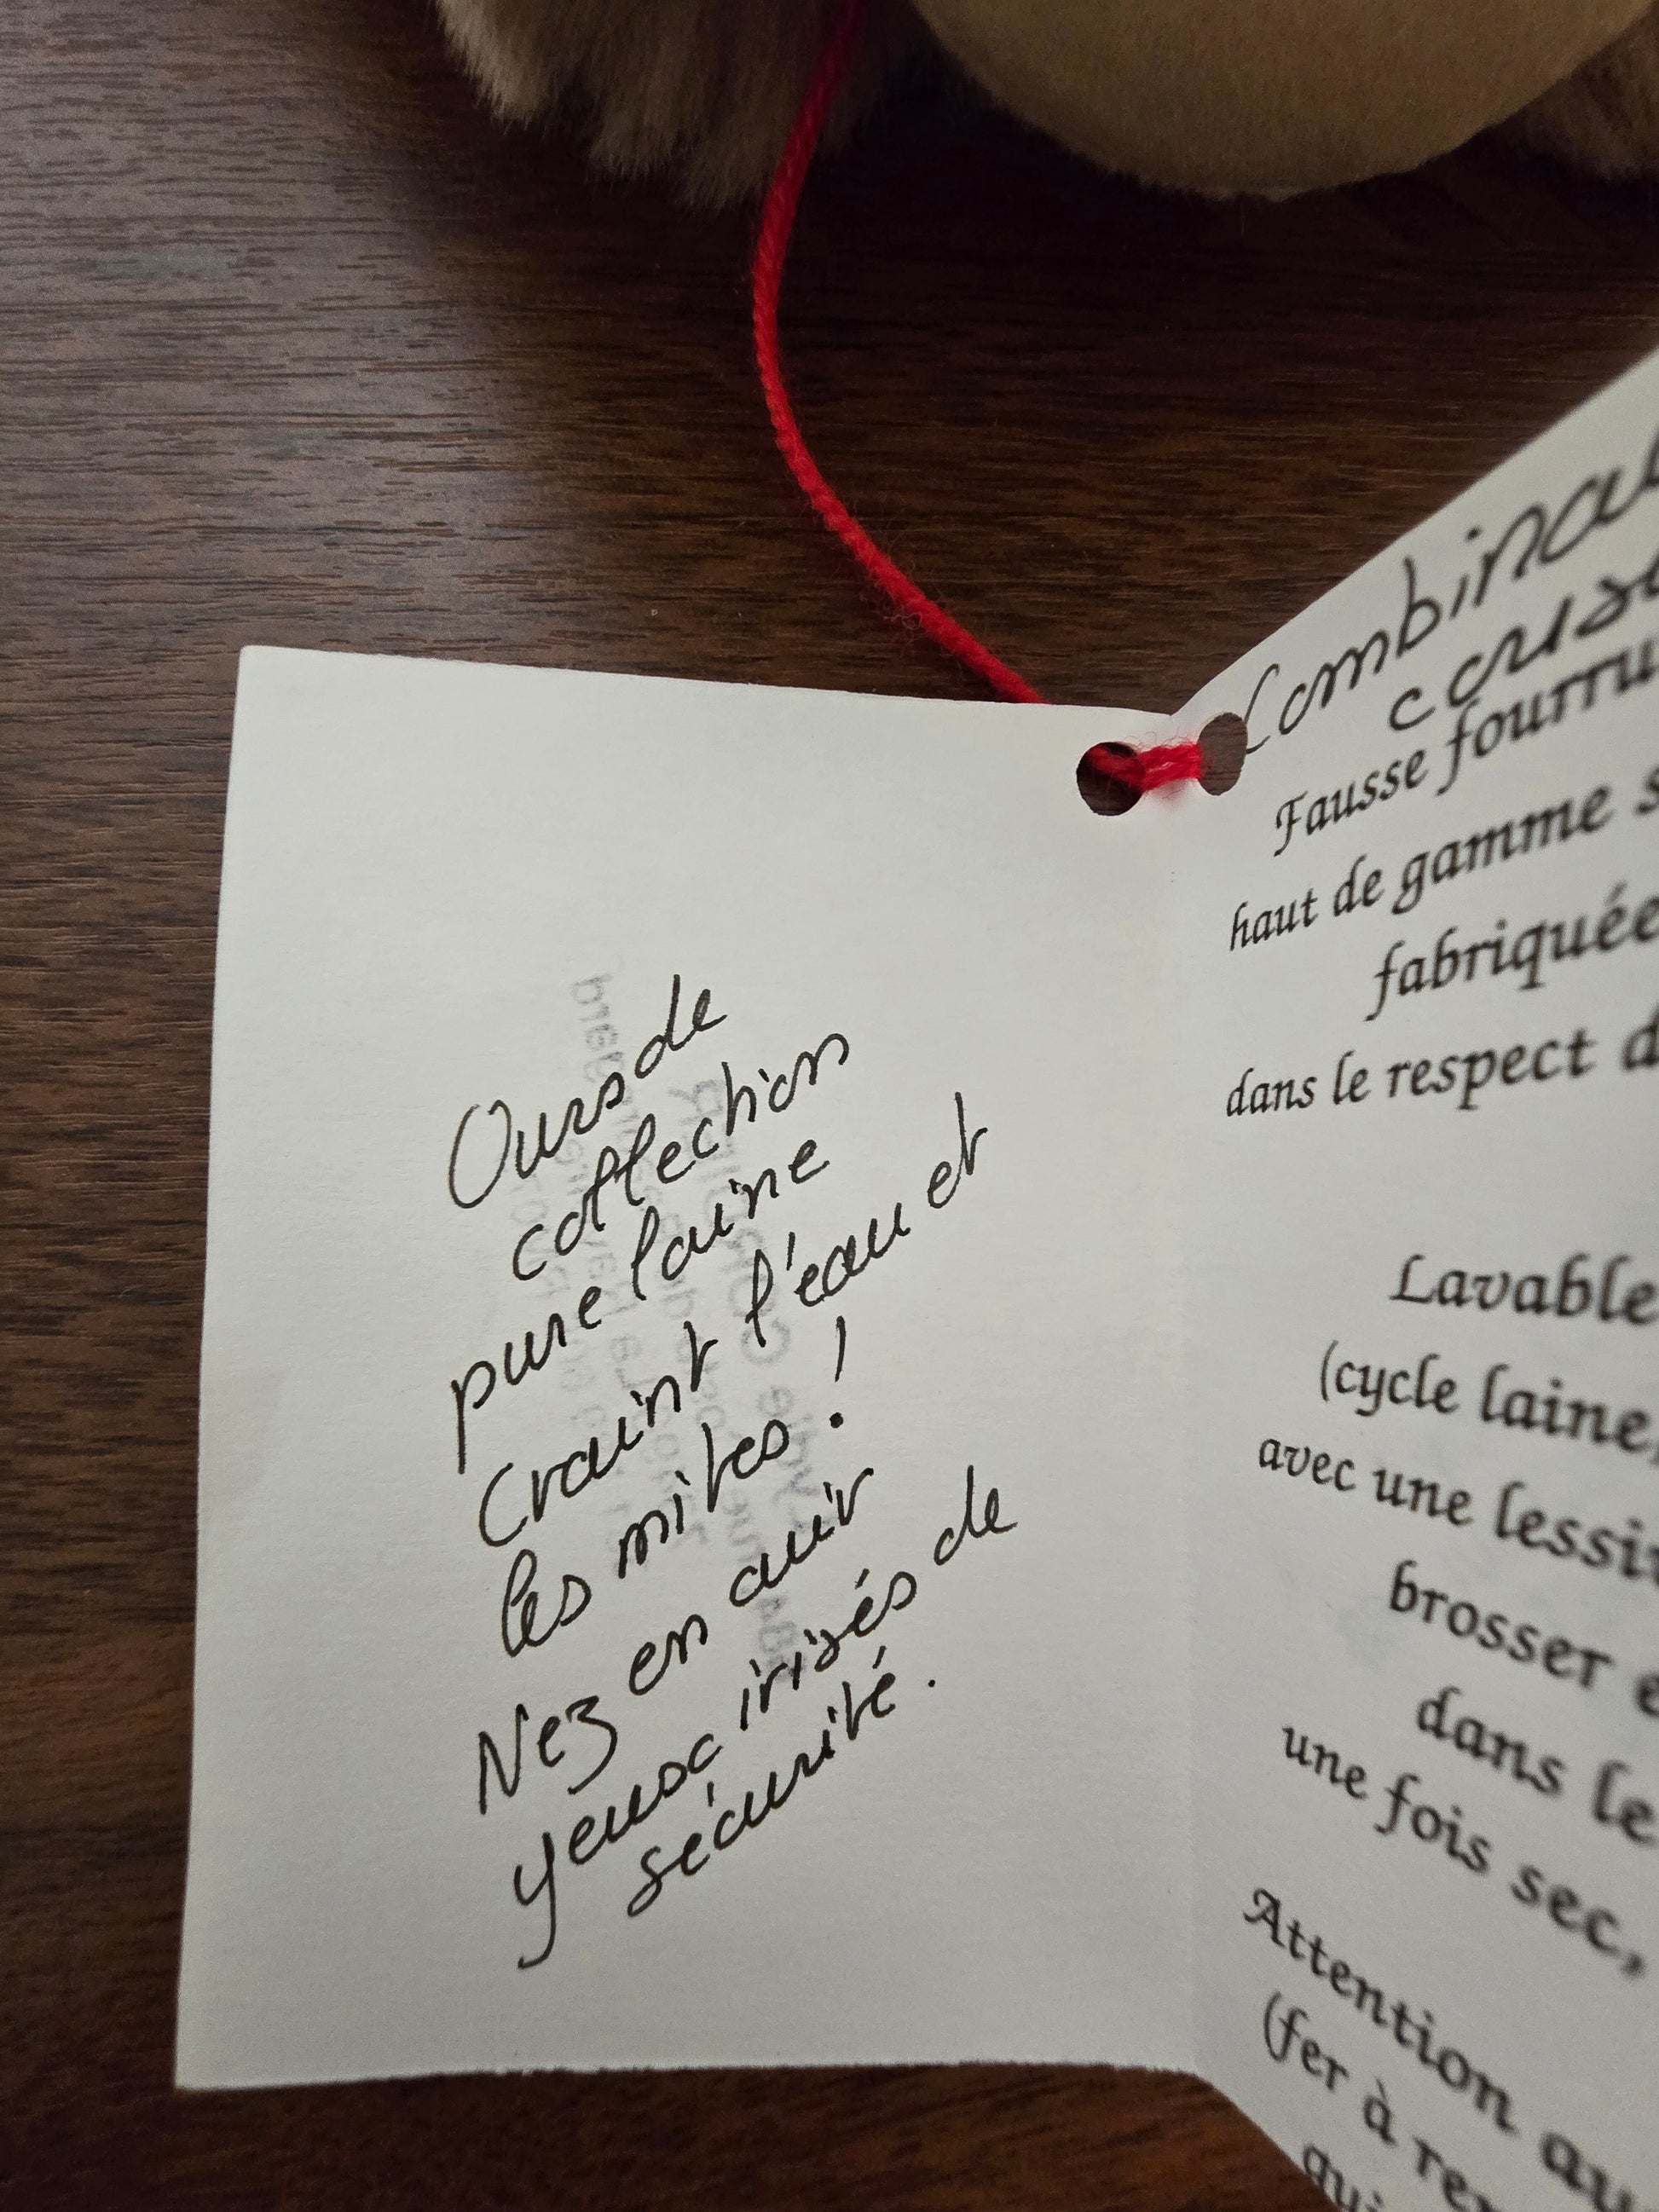 Ours de
collection
pure laine
Craint l'eau et
les mites !
Nez en cuir
yeux irisés de
sécurité.
Fausse
haut de gamme
dans le respect
Lavable
(cycle laine,
avec une
brosser
dans le
une fois sec,
Attention
(fer à